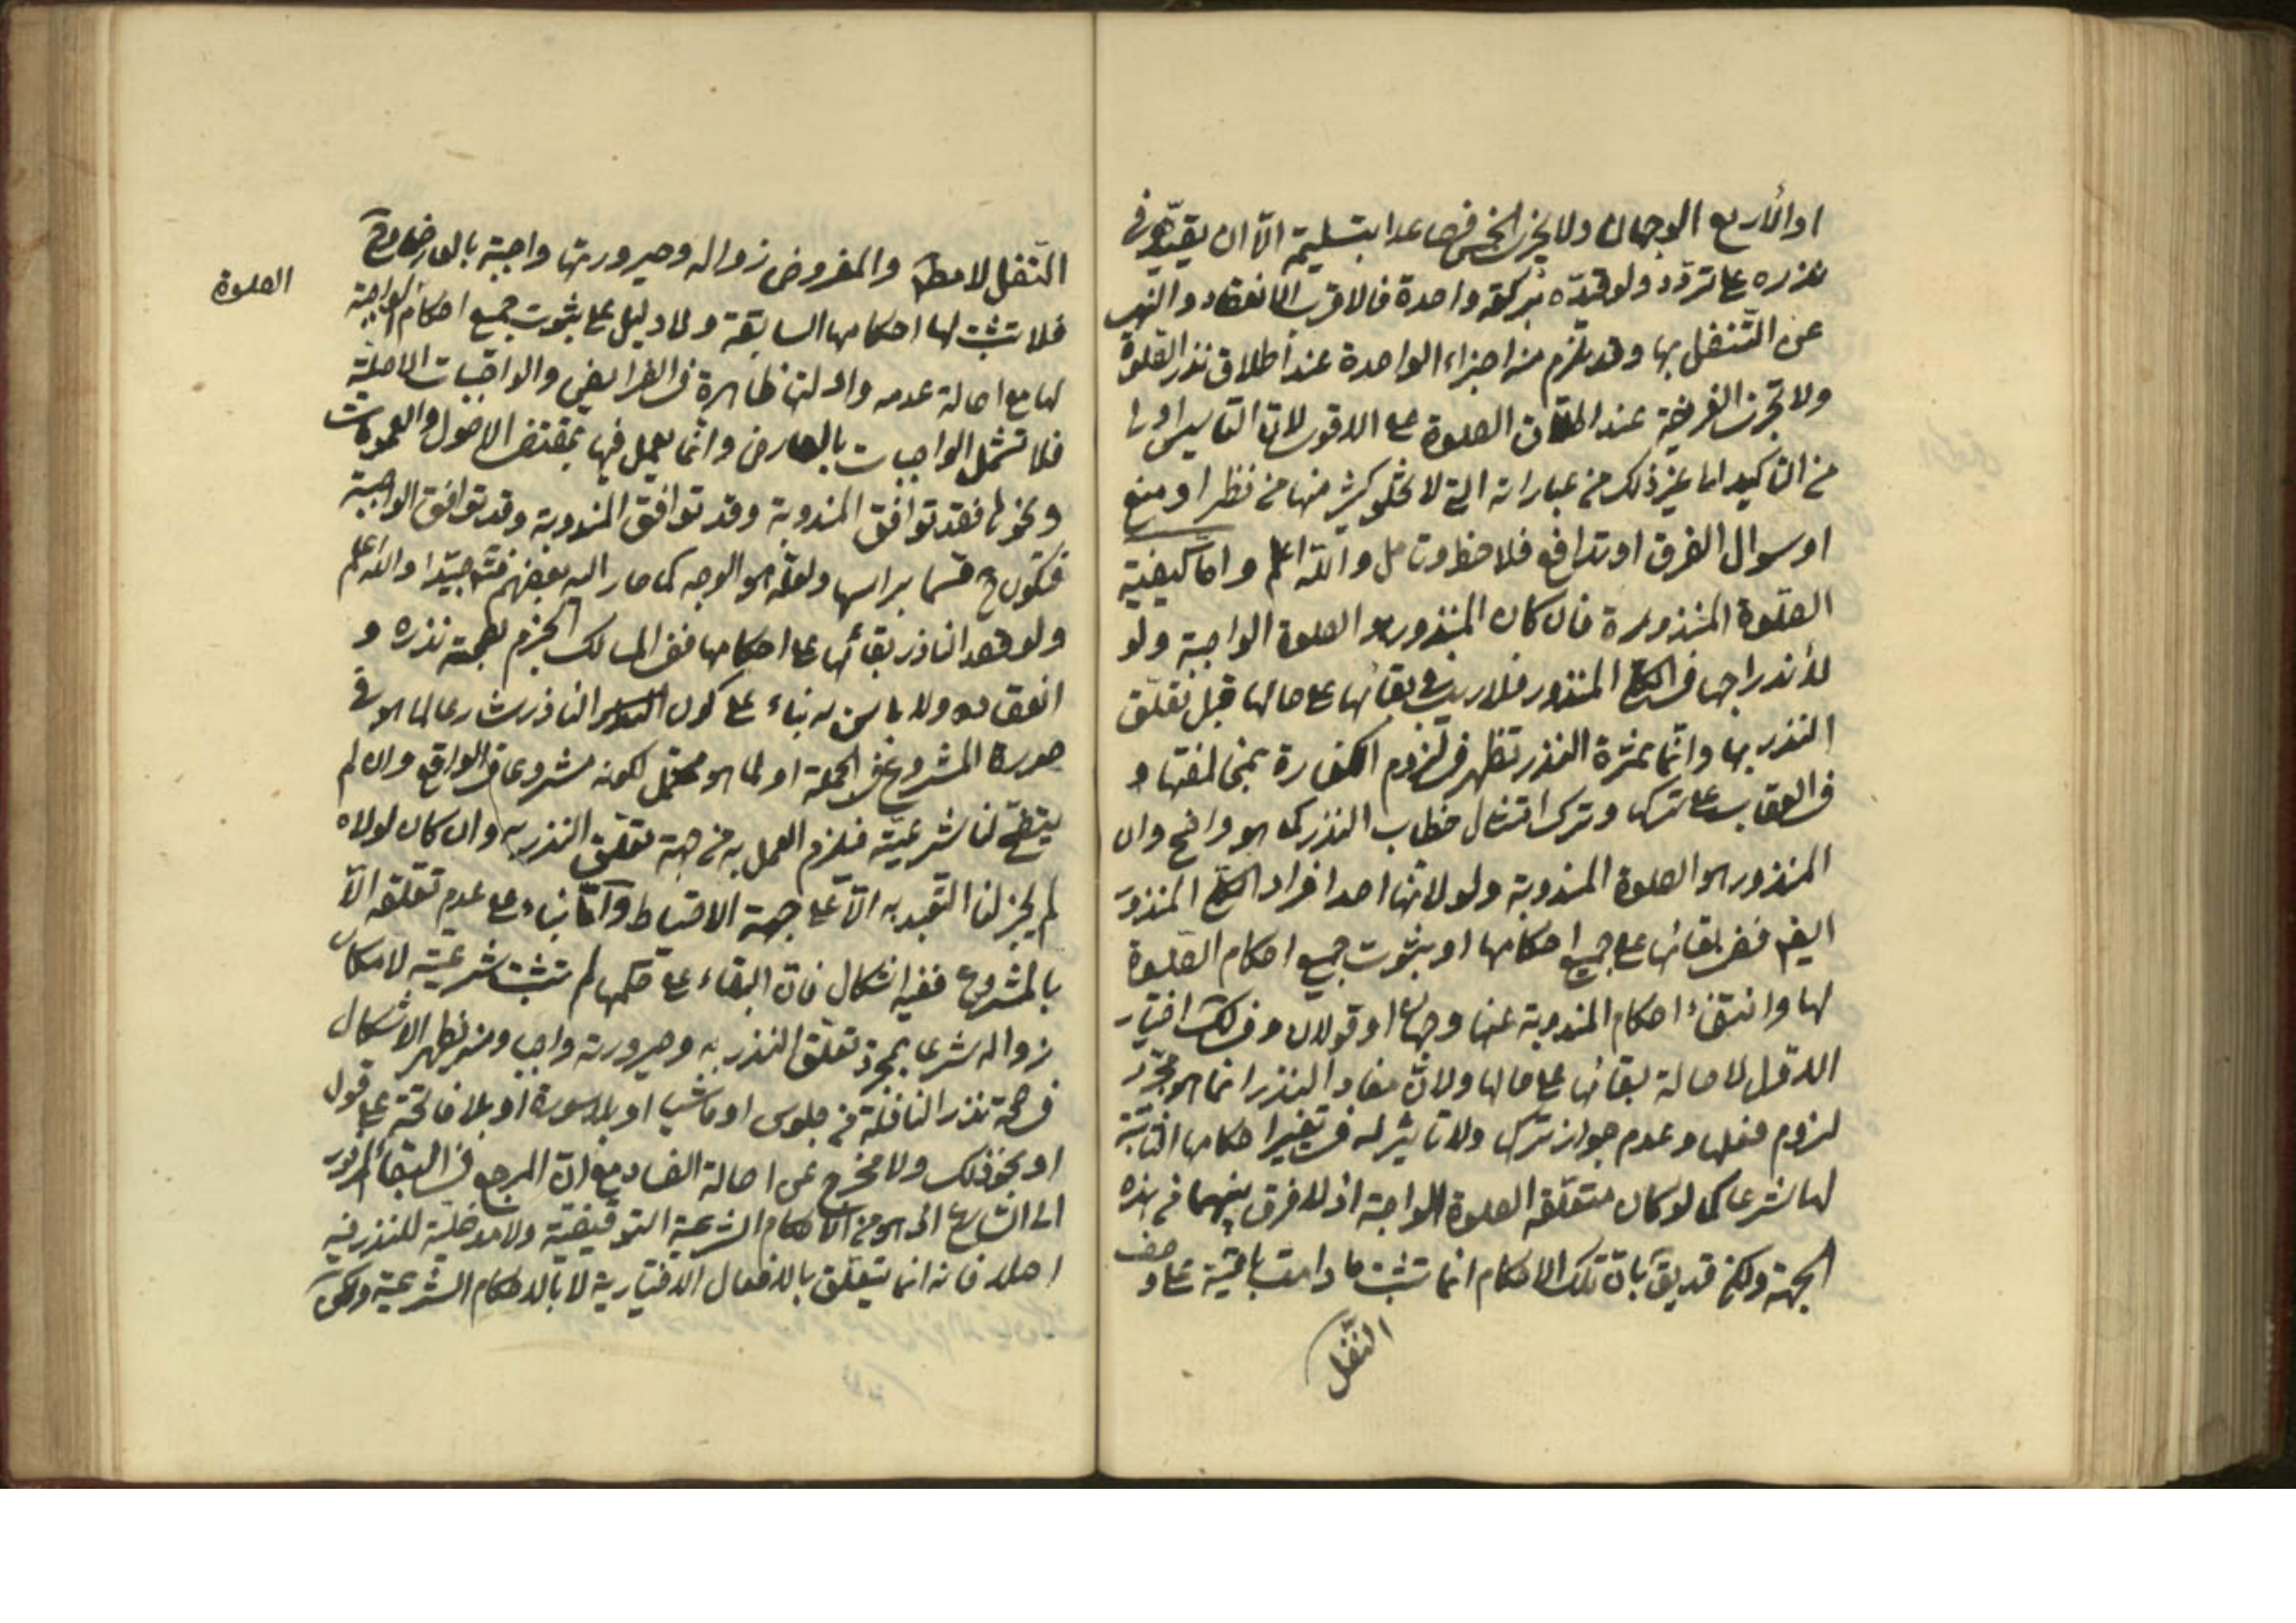 او الأربع الوجهان ولا يجزي الخمس فصاعدا بتسليمة الّا ان يقيّده في
نذره على تردّد ولو قيّده بركعة واحدة فالاقرب الانعقاد والنهي
عن التّنفل بها وقد يلزم من اجزاء الواحدة عند اطلاق نذر الصّلوة
ولا تجزي الفريضة عند اطلاق الصلوة على الاقوى لانّ التاسيس اولى
من التاكيد الى غير ذلك من عباراته التي لا يخلو كثير منها من نظر او منع
او سوال الفرق او تدافع فلاحظ وتامل والله اعلم وامّا كيفيّة
الصّلوة المنذورة فان كان المنذور هو الصلوة الواجبة ولو
لأندراجها في المنذور فلا ريب في بقائها على حالها قبل تعلّق
النذر بها وانّما ثمرة النذر تظهر في لزوم الكفارة بمخالفتها و
في العقاب على تركها وترك امتثال خطاب النذر كما هو واضح وان
المنذور هو الصلوة المندوبة ولو لانّها احد افراد المنذور
ايضا ففي بقائها على جميع احكامها او بثوت جميع احكام الصّلوة
لها وانتفاء احكام المندوبة عنها وجهان او قولان وفي لك اختيار
الاوّل لاصالة بقائها على حالها ولانّ مفاد النذر انما هو مجرّد
لزوم فعلها وعدم جواز تركها ولا تاثير له في تغيير احكامها الثابتة
لها شرعا كما لو كان متعلّقه الصلوة الواجبة اذ لا فرق بينهما من هذه
الجهة ولكن قد يقآ بانّ تلك الاحكام انما تثبت ما دامت باقية على وصف
النّفل
التّنفل لا مطلقا والمفروض زواله وصيرورتها واجبة بالعارض
فلا تثبت لها احكامها السابقة ولا دليل على ثبوت جميع احكام الواجبة
الصلوة
لها مع اصالة عدمه وادلتها ظاهرة في الفرايض والواجبات الاصليّة
فلا تشمل الواجبات بالعارض وانّما يعمل فيها بمقتضى الاصول والعمومات
ونحوها فقد توافق المندوبة وقد توافق المندوبة وقد توافق الواجبة
فتكون ح قسما براسها ولعلّه هو الوجه كما صار اليه بعضهم جيّدا والله اعلم
ولو قصد الناذر بقائها على احكامها ففي المسالك الجزم بصحة نذره و
انعقاده ولا باس به بناء على كون الناذر شارعا لما هو في
صورة المشروع في الجملة او لما هو محتمل لكونه مشروعا في الواقع وان لم
يتضح لنا شرعيّته فيلزم العمل به من جهة تعلّق النذر به وان كان لولاه
لم يجز لنا التعبد به الّا على جهة الاحتياط وآمّا بناء على عدم تعلّقه الّا
بالمشروع ففيه اشكال فانّ البقاء على حكمها لم تثبت شرعيّته لامكان
زواله شرعا بمجرد تعلّق النذر به وصيرورته واجبا ومنه يظهر الاشكال
في صحة نذر النافلة من جلوس او ماشيا او بلا سورة او بلا فاتحة على قول
او نحو ذلك ولا مخرج عن اصالة الفساد مع انّ المرجع في البقاء المزبور
الى الشارع اذ هو من الاحكام الشرعية التوقيفيّة ولا مدخليّة للنذر فيه
اصلا فانه انما يتعلّق بالافعال الاختيارية لا بالاحكام الشرعية